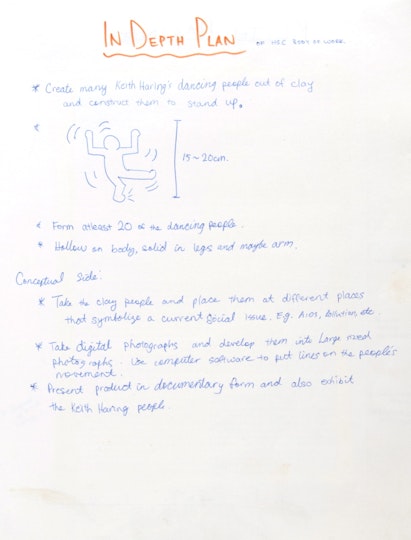 IN DEPTH PLAN OF HSC BODY OF WORK.
* Create many Keith Haring's dancing people out of clay
and construct them to stand up.
*
15~20cm.
* Form atleast 20 of the dancing people.
* Hollow on body, solid in legs and maybe arm.
Conceptual Side:
* Take the clay people and place them at different places
that symbolize a current social issue. E.g. AIDS, Pollution, etc.
* Take digital photographs and develop them into Large sized
photographs. Use computer software to put lines on the people's
movement.
* Present product in documentary form and also exhibit
the Keith Haring people.